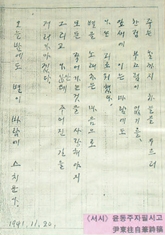 죽는 날까지 하늘을 우러러
한점 부끄럼이 없기를,
잎새에 이는 바람에도
나는 괴로워했다.
별을 노래하는 마음으로
모든 죽어가는것을 사랑해야지
그리고 나안테 주어진 길을
거러가야겠다.
오늘밤에도 별이 바람에 스치운다.
1941.11.20.
<서시> 윤동주자필사고
尹東柱自筆詩稿